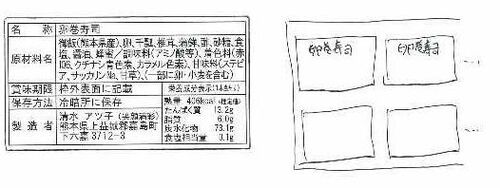 名 称 卵巻寿司
原材料名 御飯(熊本県産)、卵、干瓢、椎茸、蒲鉾、酢、砂糖、食
塩、醤油、蜂蜜／調味料(アミノ酸等)、着色料(赤
106、クチナシ青色素、カラメル色素)、甘味料(ステビ
ア、サッカリンNa、甘草)、(一部に卵・小麦を含む)
賞味期限 枠外表面に記載
保存方法 冷暗所に保存
製造者 清水 アツ子
熊本県上益城郡嘉島町
下六嘉3712-3
栄養成分表示
熱量 406kcal
たんぱく質 13.2g
脂質 6.0g
炭水化物 73.1g
食塩相当量 3.1g
卵巻寿司
卵巻寿司